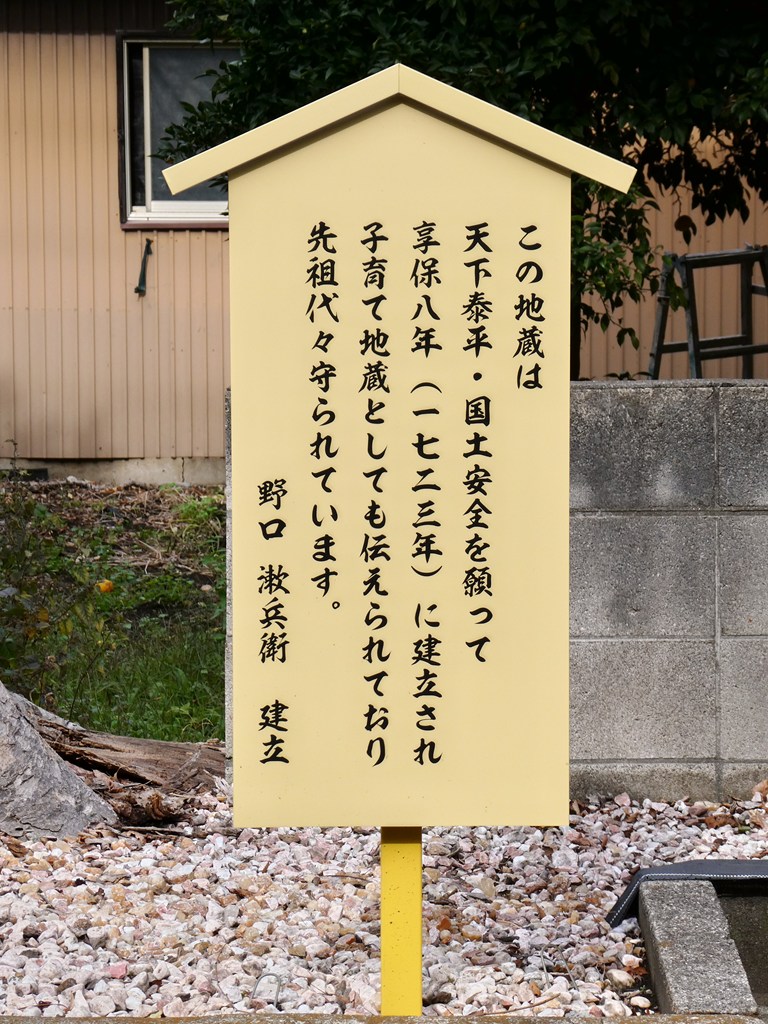 この地蔵は
天下泰平・国土安全を願って
享保八年（一七二三年）に建立され
子育て地蔵としても伝えられており
先祖代々守られています。
野口 漱兵衛 建立